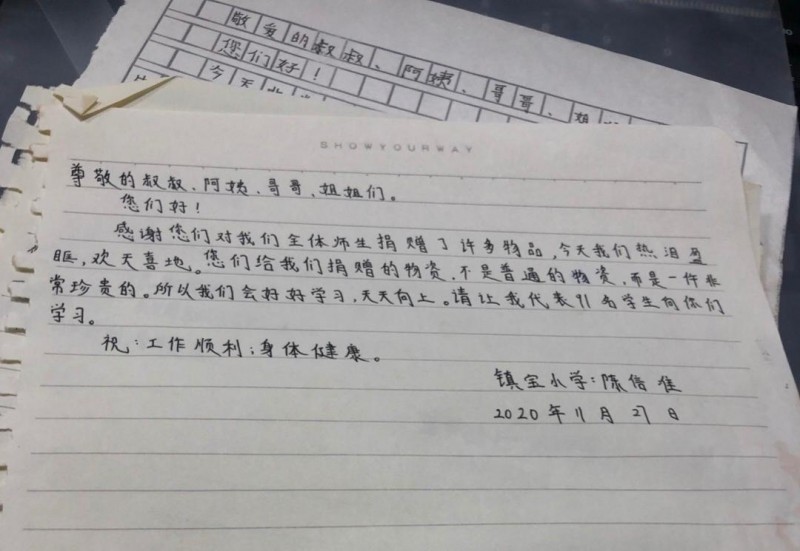 敬爱的叔叔、阿姨、哥哥、姐
您们好！
今天
SHOWYOURWAY
尊敬的叔叔、阿姨、哥哥、姐姐们。
您们好！
感谢您们对我们全体师生捐赠了许多物品，今天我们热泪盈
眶，欢天喜地。您们给我们捐赠的物资，不是普通的物资，而是一件非
常珍贵的。所以我们会好好学习，天天向上。请让我代表91名学生向你们
学习。
祝：工作顺利；身体健康。
镇宝小学：陈倍佳
2020年11月27日